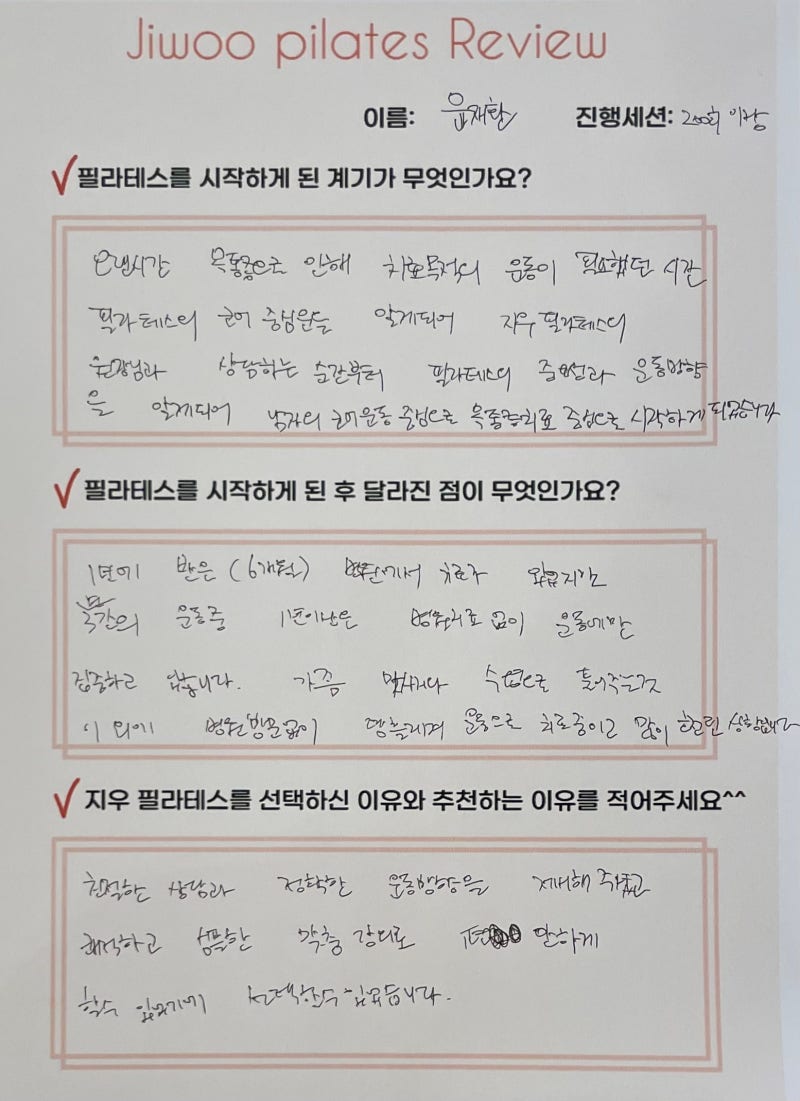 Jiwoo pilates Review
이름: 윤재환 진행세션: 200회 이상
필라테스를 시작하게 된 계기가 무엇인가요?
오랜시간 목통증으로 인해 치료목적의 운동이 필요했던 시간
필라테스의 코어 중심운동을 알게되어 지우 필라테스의
원장님과 상담하는 순간부터 필라테스의 중요성과 운동방향
을 알게되어 남자의 코어운동 중심으로 목통증치료 중심으로 시작하게 되었습니다
필라테스를 시작하게 된 후 달라진 점이 무엇인가요?
1년에 반은 (6개월) 병원에서 치료가
운동중 1년이넘은 병원치료 없이 운동에만
집중하고 있습니다. 가끔 수면으로 틀어주는것
이 외에 병원방문없이 운동으로 치료중이고 많이
지우 필라테스를 선택하신 이유와 추천하는 이유를 적어주세요^^
친절한 상담과 정확한 운동방향을 제시해 주었고
쾌적하고 강의로 편안하게
할수 있었기에 선택할수 있었습니다.